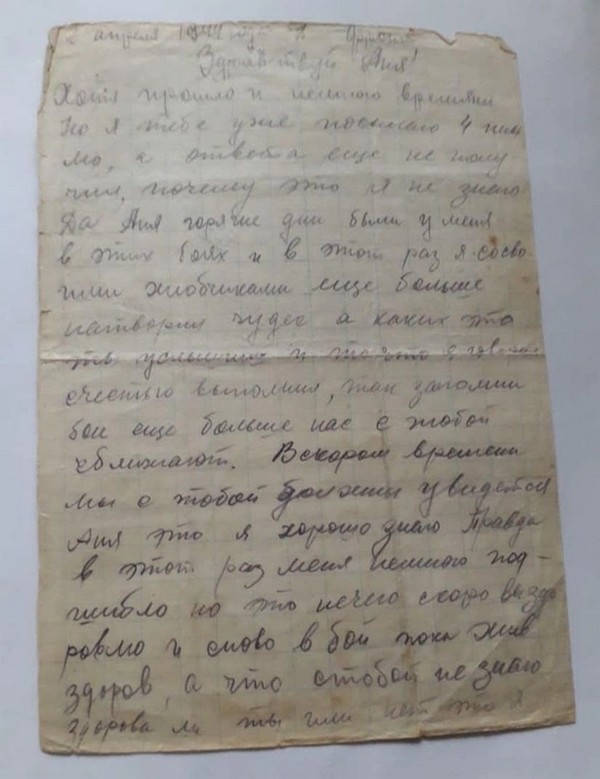 2 апреля 1944 г.
Здравствуй Аня!
Хотя прошло и немного времяни
Но я тебе уже посылаю 4 пись
мо, а ответа еще не полу
чил, почему это я не знаю
Да Аня горячие дни были у меня
в этих боях и в этот раз я сосво
ими хлобчиками еще больше
натворил чудес а каких это
ты услышишь и то что я говорил
счестью выполнил, так запомни
бои еще больше нас с тобой
сближают. Вскором времени
мы с тобой должны увидется
Аня это я хорошо знаю Правда
в этот раз меня немного под-
шибло но это нечего скоро выздо
ровлю и снова в бой пока жив
здоров, а что стобой не знаю
здорова ли ты или нет это я